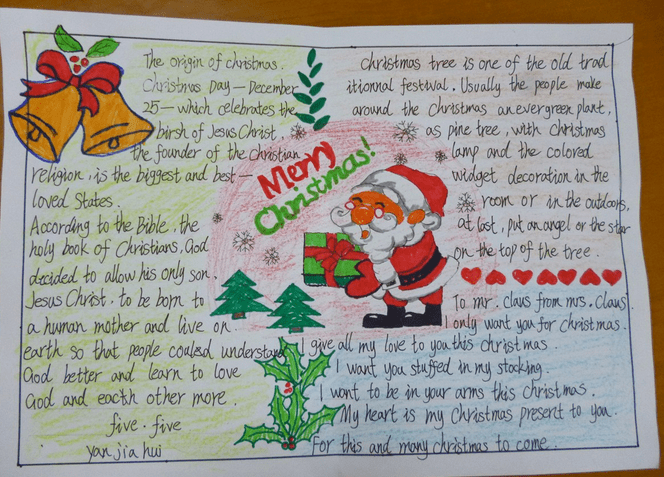 The origin of christmas.
Christmas Day — December
25 — which celebrates the
birsh of Jesus Christ,
the founder of the Christian
religion, is the biggest and best —
loved States.
According to the Bible, the
holy book of Christians, God
decided to allow his only son,
Jesus Christ, to be born to
a human mother and live on
earth so that people couled understand
God better and learn to love
God and eacth other more.
five. five
yan jia hui
Merry
Christmas!
Christmas tree is one of the old trad
itionnal festival. Usually the people make
around the Christmas an evergreen plant,
as pine tree, with christmas
lamp and the colored
widget decoration in the
room or in the outdoors,
at last, put an angel or the star
on the top of the tree.
To mr. claus from mrs. Claus.
I only want you for christmas.
I give all my love to you this christmas.
I want you stuffed in my stocking.
I want to be in your arms this christmas.
My heart is my Christmas present to you.
for this and many christmas to come.